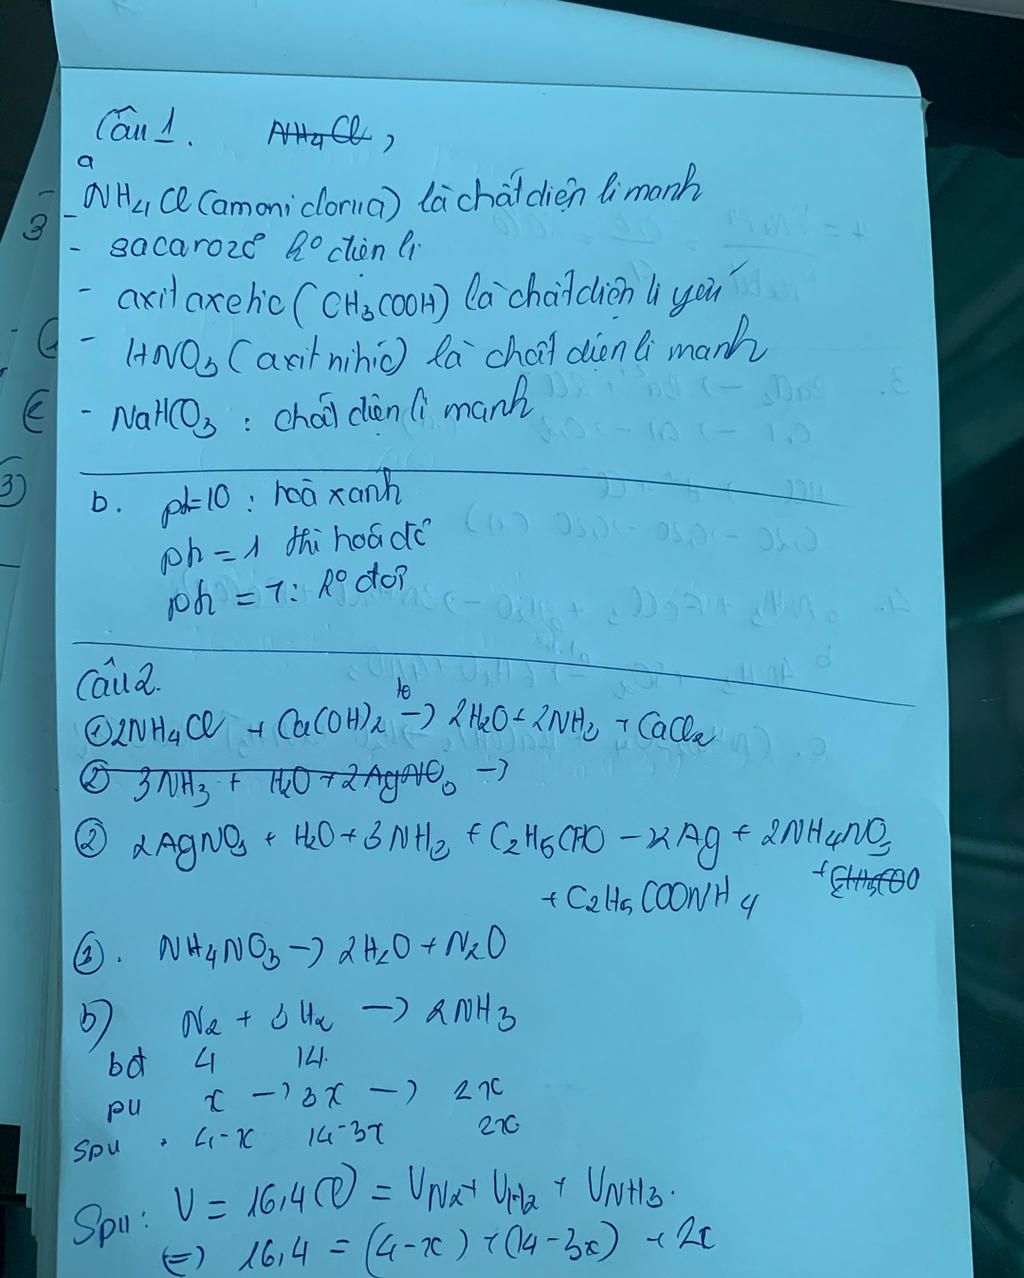 Câu 1. NH4Cl,
a
- NH4Cl (amoni clorua) là chất điện li mạnh
- sacarozơ ko điện li
- axit axetic (CH3COOH) là chất điện li yếu
- HNO3 (axit nitric) là chất điện li mạnh
- NaHCO3 : chất điện li mạnh
b. pH=10 : hoá xanh
ph = 1 thì hoá đỏ
ph = 7: ko đổi
Câu 2.
① 2NH4Cl + Ca(OH)2 →to 2H2O + 2NH3 + CaCl2
② 3NH3 + H2O + 2AgNO3 →
② 2AgNO3 + H2O + 3NH3 + C2H5CHO → 2Ag + 2NH4NO3
+ C2H5COONH4
③. NH4NO3 → 2H2O + N2O
b) N2 + 3H2 → 2NH3
bđ 4 14.
pu x → 3x → 2x
spu 4-x 14-3x 2x
Spu: V = 16,4 (l) = VN2 + VH2 + VNH3.
(=) 16,4 = (4-x) + (14-3x) + 2x